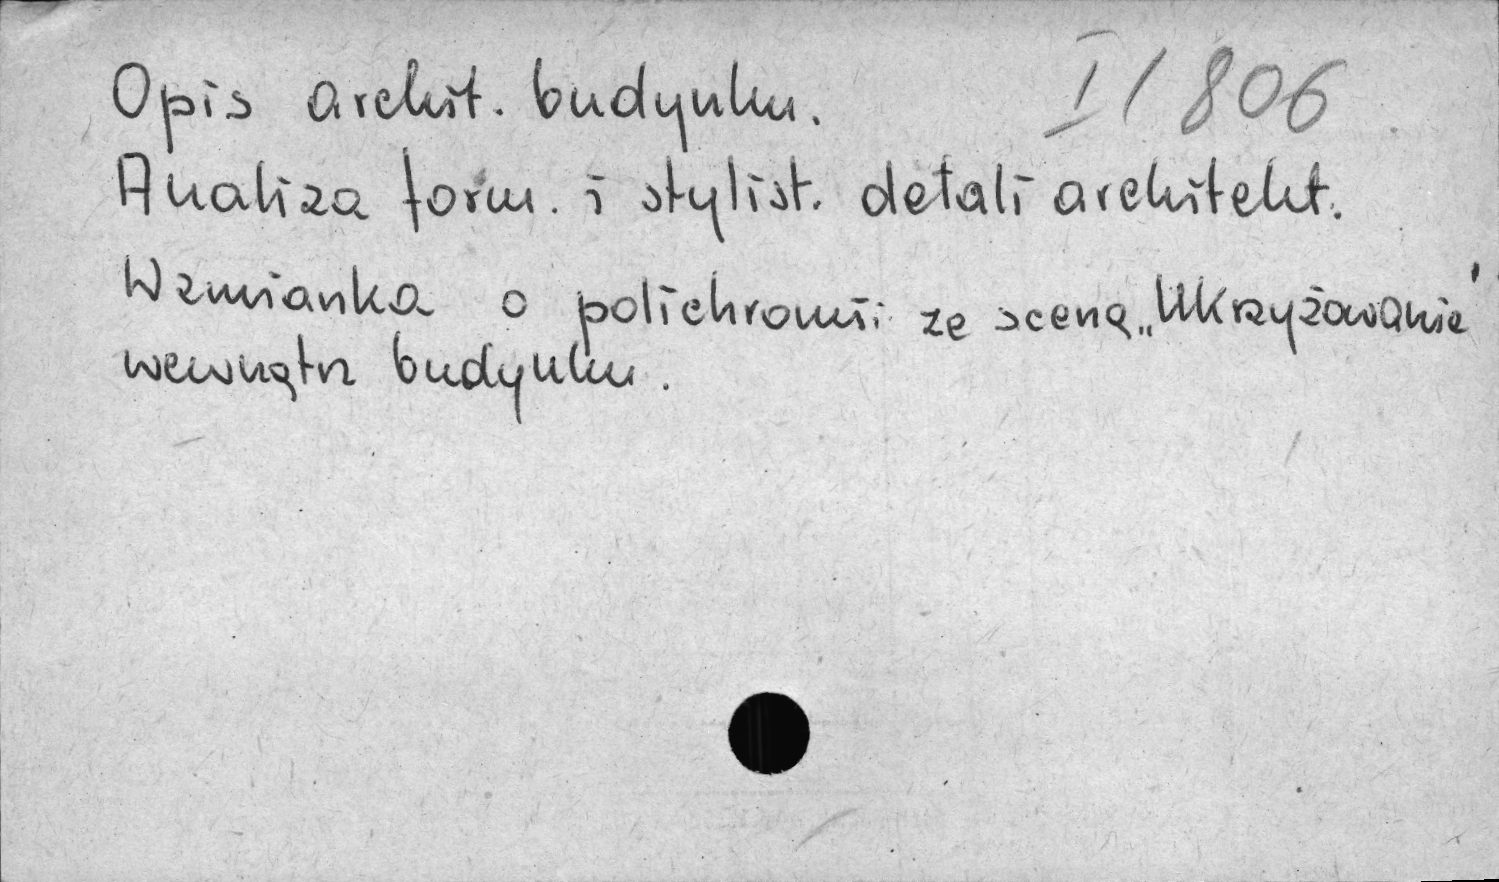 I/806
Opis archit. budynku.
Analiza form. i stylist. detali architekt.
Wzmianka o polichromii ze sceną „Ukrzyżowanie"
wewnątrz budynku.